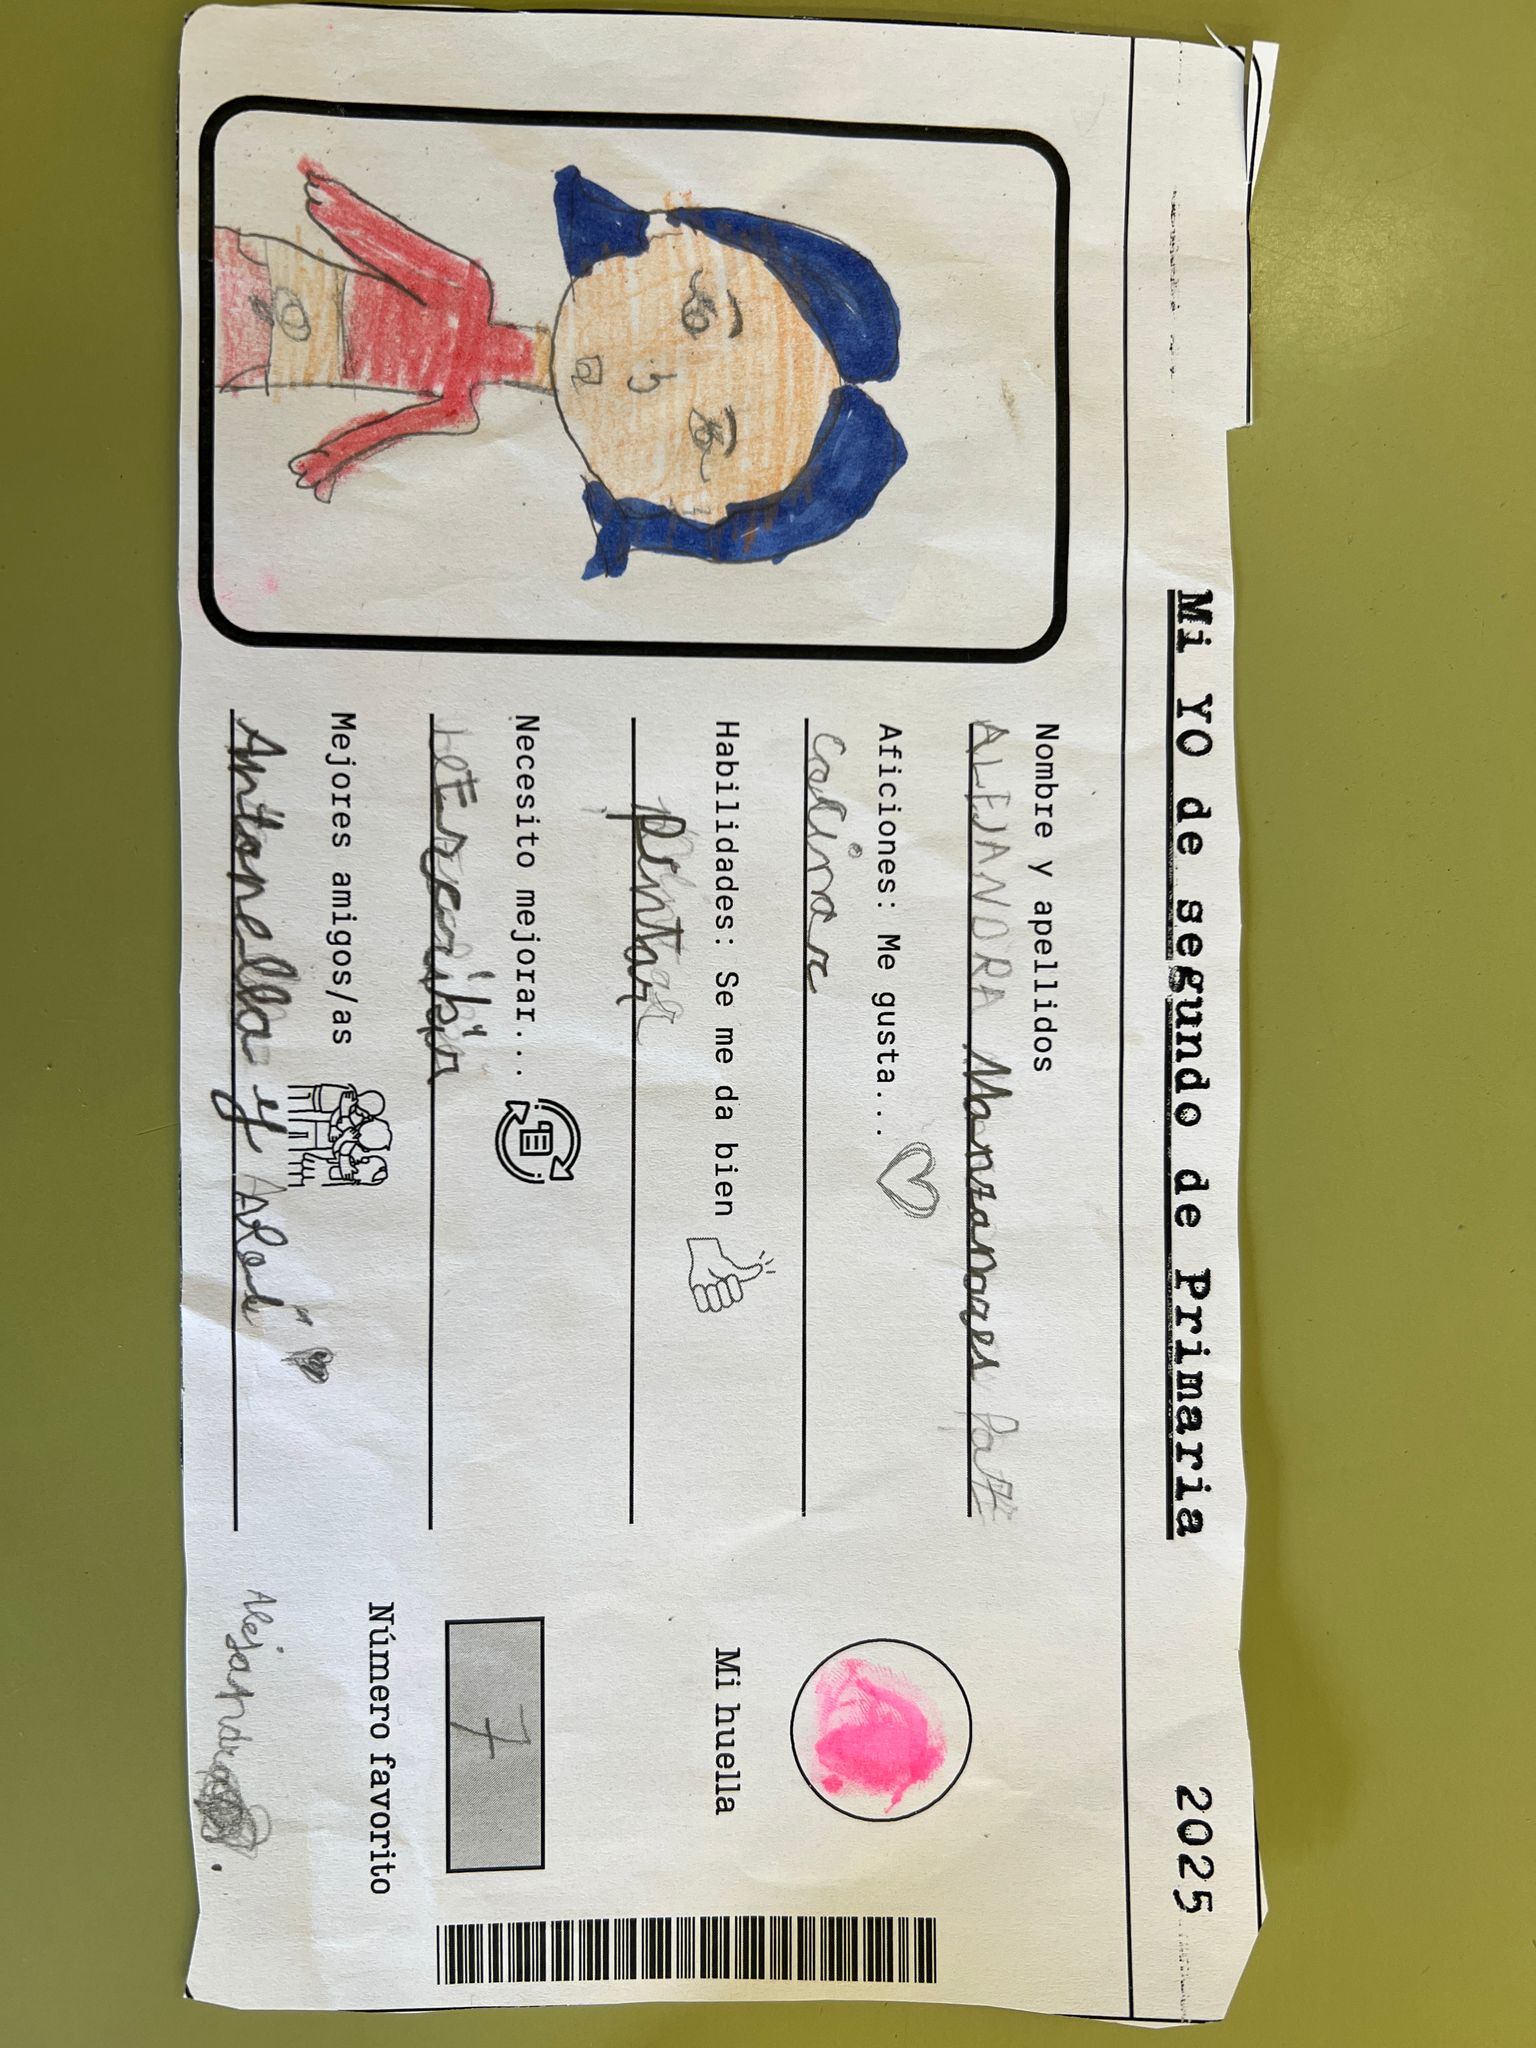 Mi YO de segundo de Primaria
2025
Nombre y apellidos
ALEJANDRA Manzanares Paz
Aficiones: Me gusta...
Cocinar
Habilidades: Se me da bien
Pintar
Necesito mejorar...
Escribir
Mejores amigos/as
Antonella y
Mi huella
7
Número favorito
Alejandra